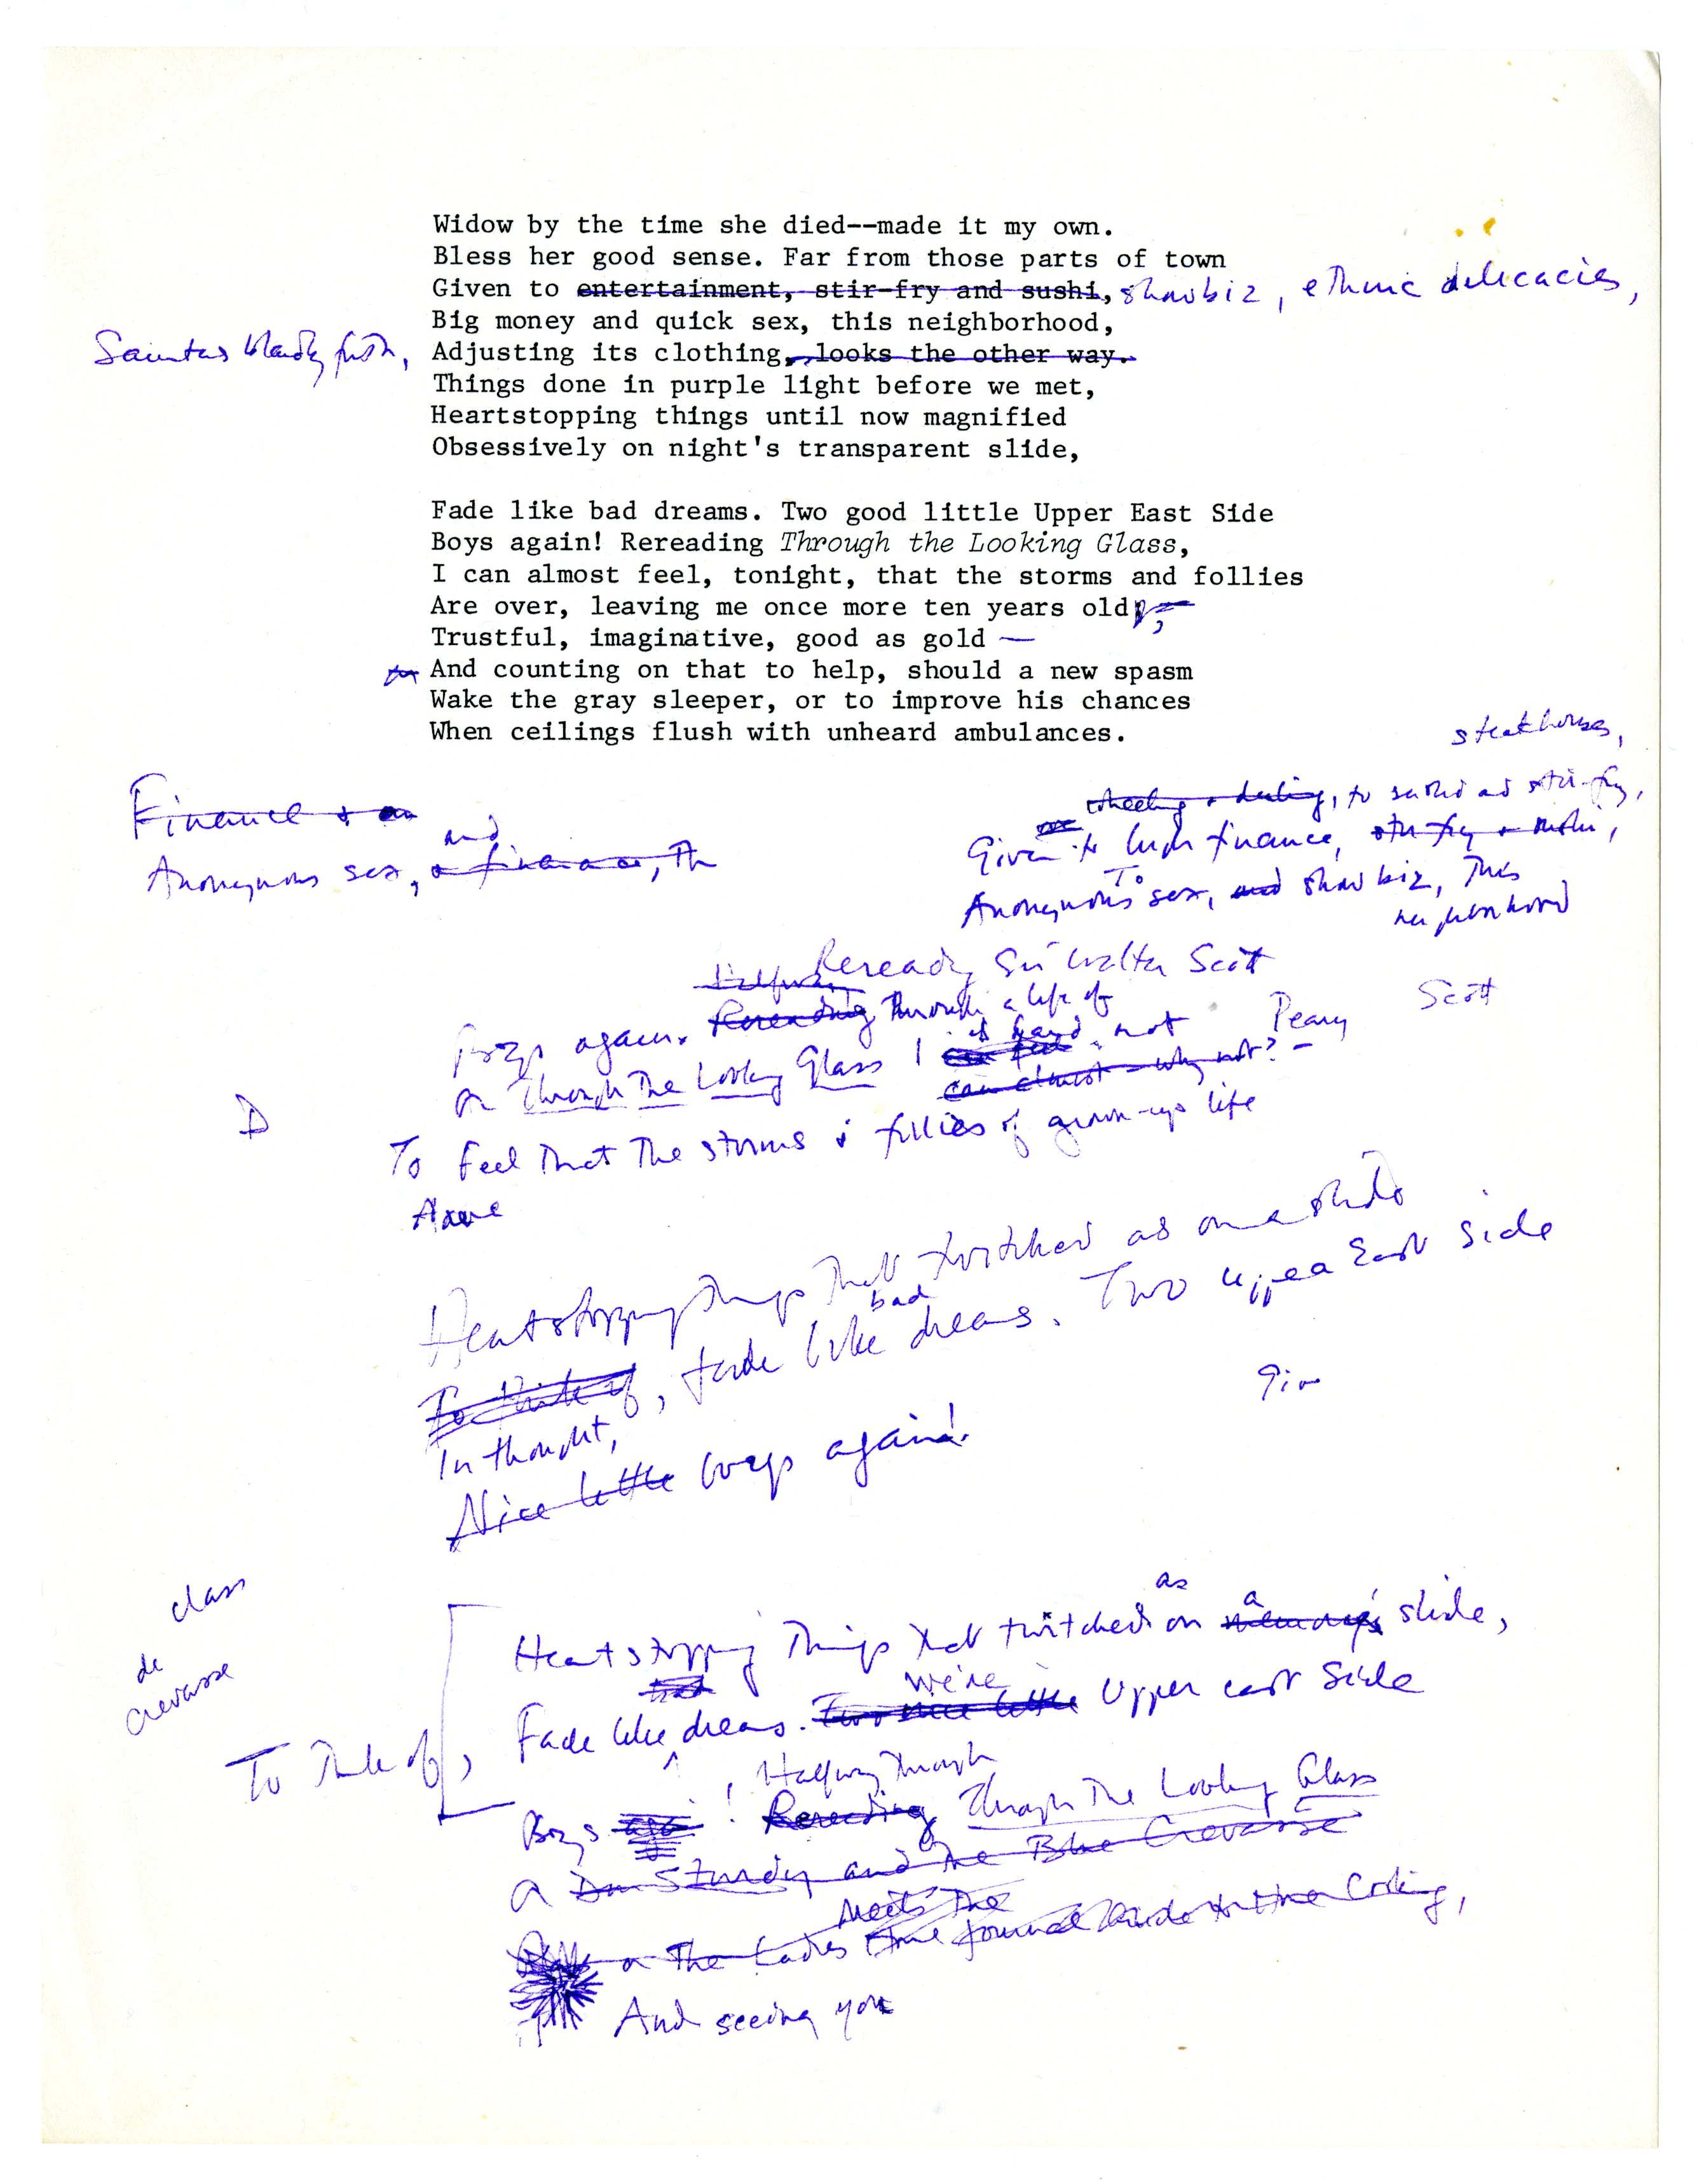 Widow by the time she died--made it my own.
Bless her good sense. Far from those parts of town
Given to entertainment, stir-fry and sushi, showbiz, ethnic delicacies,
Big money and quick sex, this neighborhood,
Saunters blandly forth, Adjusting its clothing, looks the other way.
Things done in purple light before we met,
Heartstopping things until now magnified
Obsessively on night's transparent slide,
Fade like bad dreams. Two good little Upper East Side
Boys again! Rereading Through the Looking Glass,
I can almost feel, tonight, that the storms and follies
Are over, leaving me once more ten years old,
Trustful, imaginative, good as gold —
And counting on that to help, should a new spasm
Wake the gray sleeper, or to improve his chances
When ceilings flush with unheard ambulances.
steakhouses,
Finance & an
wheeling & dealing, to sushi and stir-fry,
Given to high finance, stir fry & sushi,
and
Anonymous sex, & finance, Th
To
Anonymous sex, and showbiz, This
neighborhood
Rereading Sir Walter Scott
Halfway
Boys again. Rereading Through a life of
Peary Scott
is hard not
or Through The Looking Glass I can feel
can almost – why not? –
D
To feel that the storms & follies of grown-up life
Have
Heartstopping things that twitched as on a slide
bad
To think of, fade like dreams. Two Upper East Side
In thought,
Giv
Nice little boys again!
class
as
a
Heartstopping Things that twitched on memory's slide,
de
crevasse
bad
we're
Fade like dreams. Two nice little Upper East Side
To Think of,
, Halfway Through
Boys again ! Rereading Through The Looking Glass
or Don Sturdy and the Blue Crevasse
Meets The
or The Ladies
And seeing you